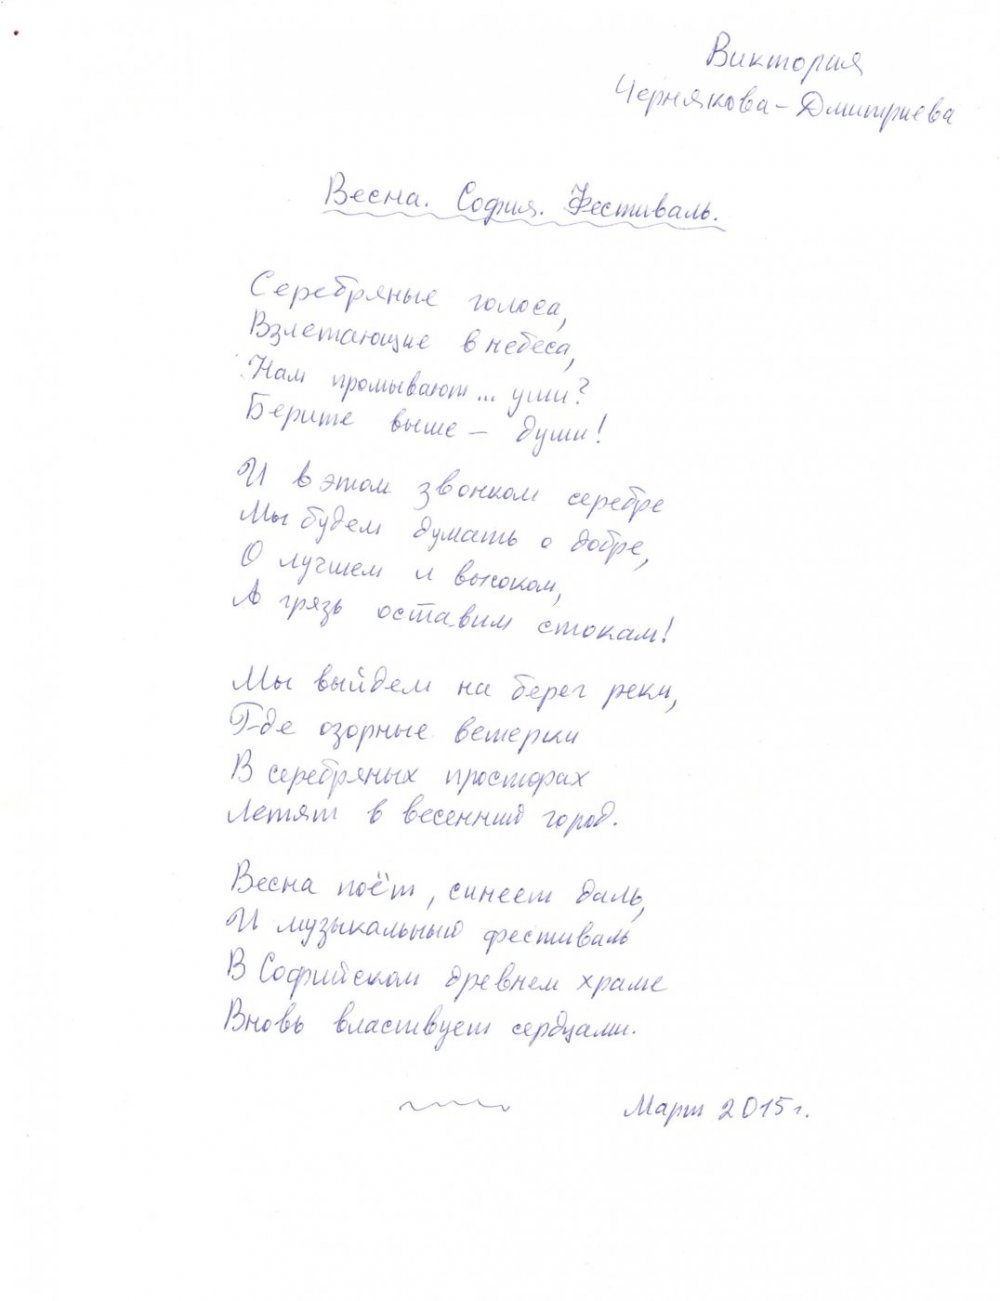 Виктория
Чернякова-Дмитриева
Весна. София. Фестиваль.
Серебряные голоса,
Взлетающие в небеса,
Нам промывают... уши?
Берите выше – души!
И в этом звонком серебре
Мы будем думать о добре,
О лучшем и высоком,
А грязь оставим стокам!
Мы выйдем на берег реки,
Где озорные ветерки
В серебряных просторах
Летят в весенний город.
Весна поёт, синеет даль,
И музыкальный фестиваль
В Софийском древнем храме
Вновь властвует сердцами.
Март 2015 г.